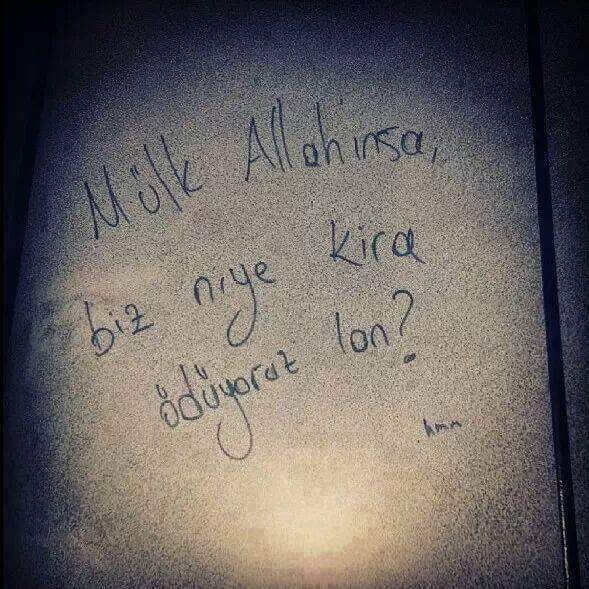 Mülk Allahınsa,
biz niye kira
ödüyoruz lan?
hmm